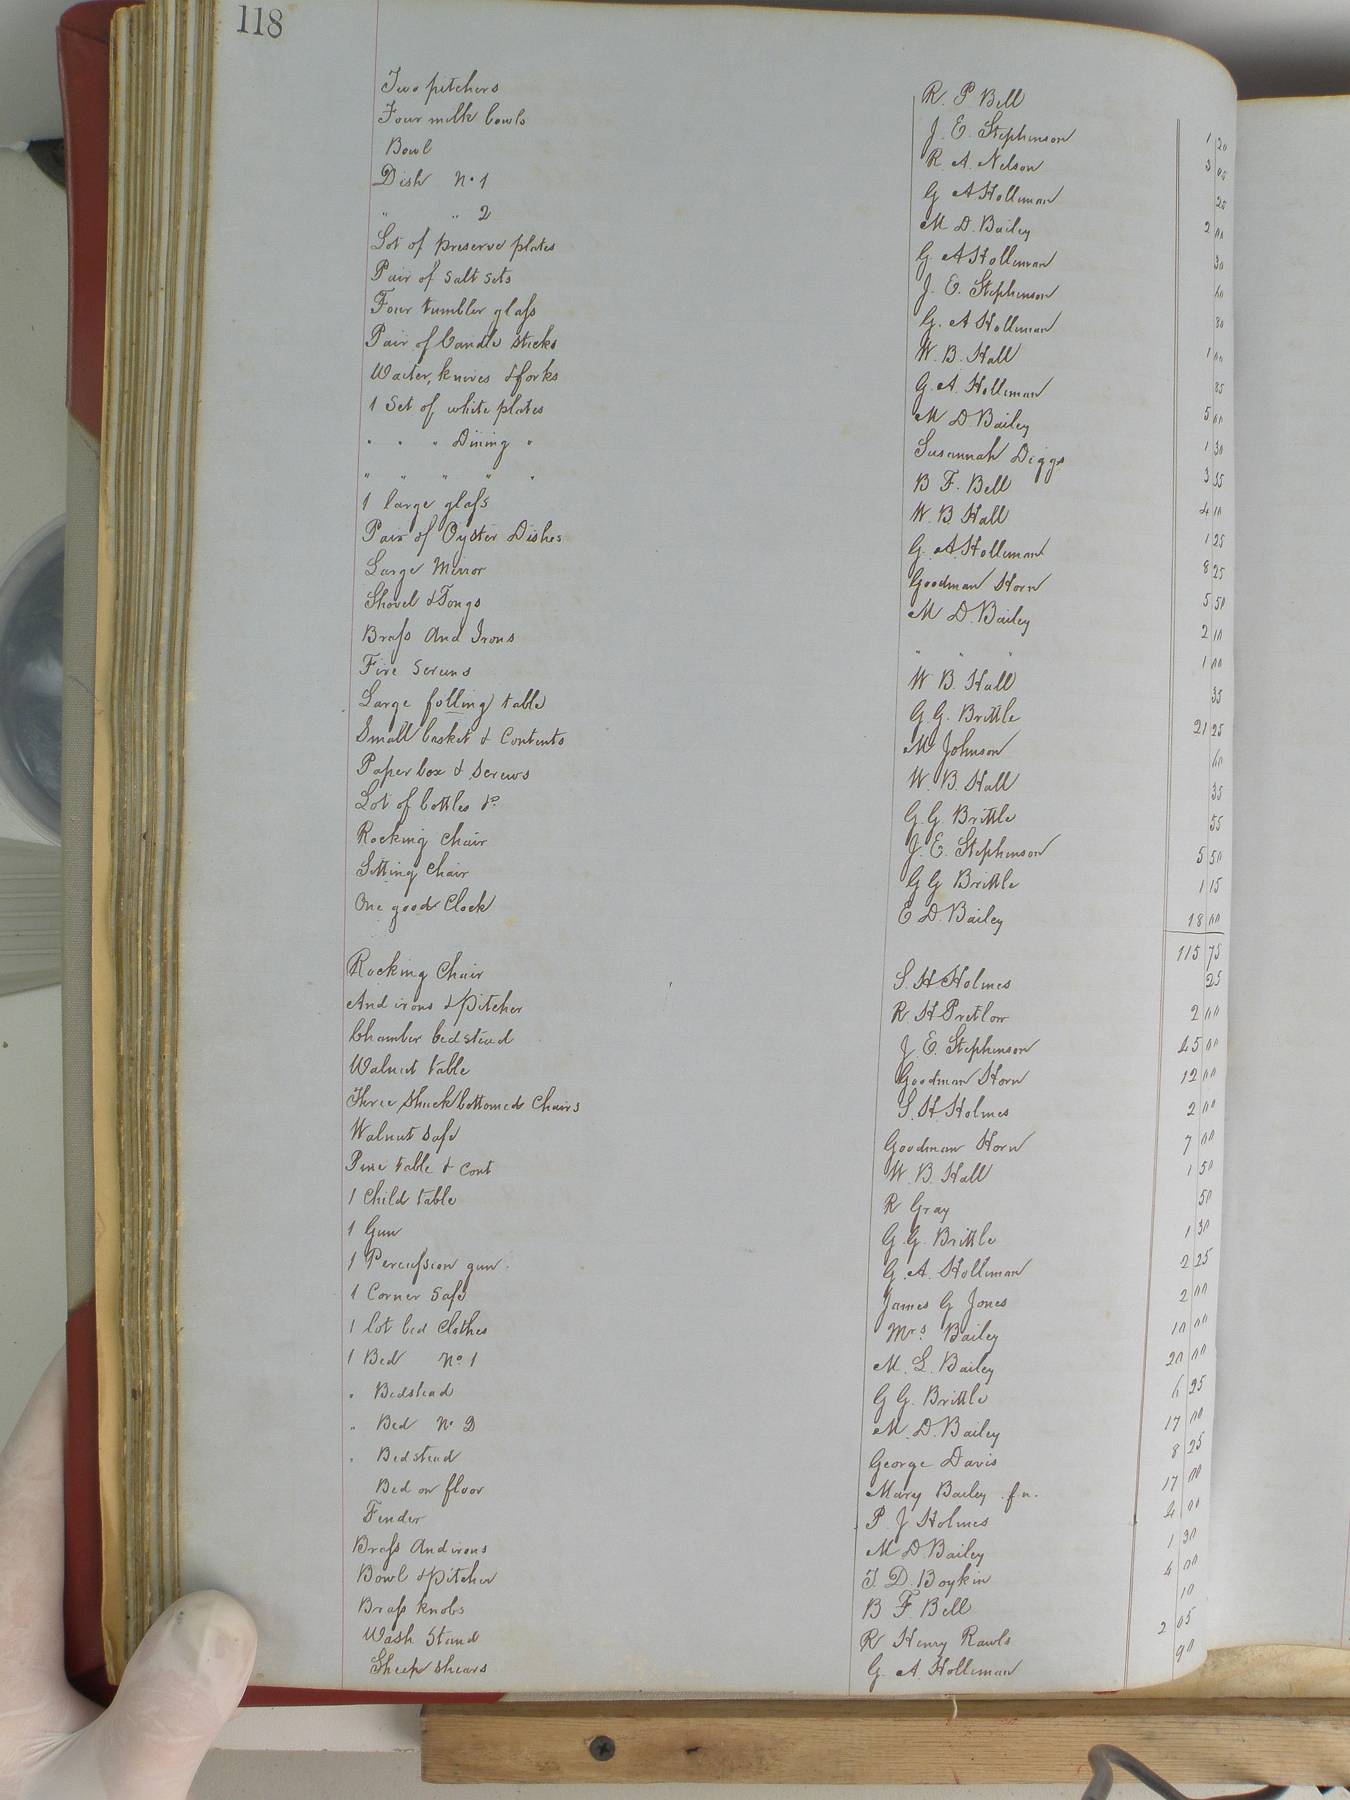 118
Two pitchers R. P. Bell 1 20
Four milk bowls J. E. Stephenson 3 05
Bowl R. A. Nelson 25
Dish No 1 G A Holleman 2 00
" " 2 M. D. Bailey 30
Lot of preserve plates G. A Holleman 60
Pair of Salt sets J. E. Stephenson 80
Four tumbler glass G. A Holleman 1 00
Pair of Candle Sticks W. B. Hall 85
Waiter, knives & forks G. A. Holleman 5 00
1 Set of white plates M D. Bailey 1 30
" " " Dining " Susannah Diggs 3 55
" " " " " B F. Bell 4 10
1 large glass W. B. Hall 1 25
Pair of Oyster Dishes G. A. Holleman 8 25
Large Mirror Goodman Horn 5 50
Shovel & Tongs M D. Bailey 2 10
Brass And Irons " " " 1 00
Fire Screens W B. Hall 35
Large folling table G. G. Brittle 21 25
Small basket & Contents M Johnson 60
Paper box & Screws W. B. Hall 35
Lot of bottles &c G. G. Brittle 55
Rocking Chair J. E. Stephenson 5 50
Sitting Chair G G Brittle 1 15
One good Clock E D. Bailey 18 00
115 75
Rocking Chair S. H Holmes 25
And irons & Pitcher R. H Pretlow 2 00
Chamber bedstead J. E. Stephenson 45 00
Walnut table Goodman Horn 12 00
Three Shuckbottomed Chairs S. H Holmes 2 00
Walnut Safe Goodman Horn 7 00
Pine table & cont W. B. Hall 1 50
1 Child table R Gray 50
1 Gun G. G. Brittle 1 30
1 Percussion gun. G. A. Holleman 2 25
1 Corner Safe James G Jones 2 00
1 lot bed Clothes Mrs. Bailey 10 00
1 Bed No. 1 M. L. Bailey 20 00
" Bedstead G G. Brittle 6 25
" Bed No 2 M. D. Bailey 17 00
" Bedstead George Davis 8 25
Bed on floor Mary Bailey f.n. 17 00
Fender P. J Holmes 4 00
Brass Andirons M D. Bailey 1 30
Bowl & Pitcher J. D. Boykin 4 00
Brass knobs B F. Bell 10
Wash Stand R Henry Rawls 2 05
Sheep shears G. A. Holleman 90